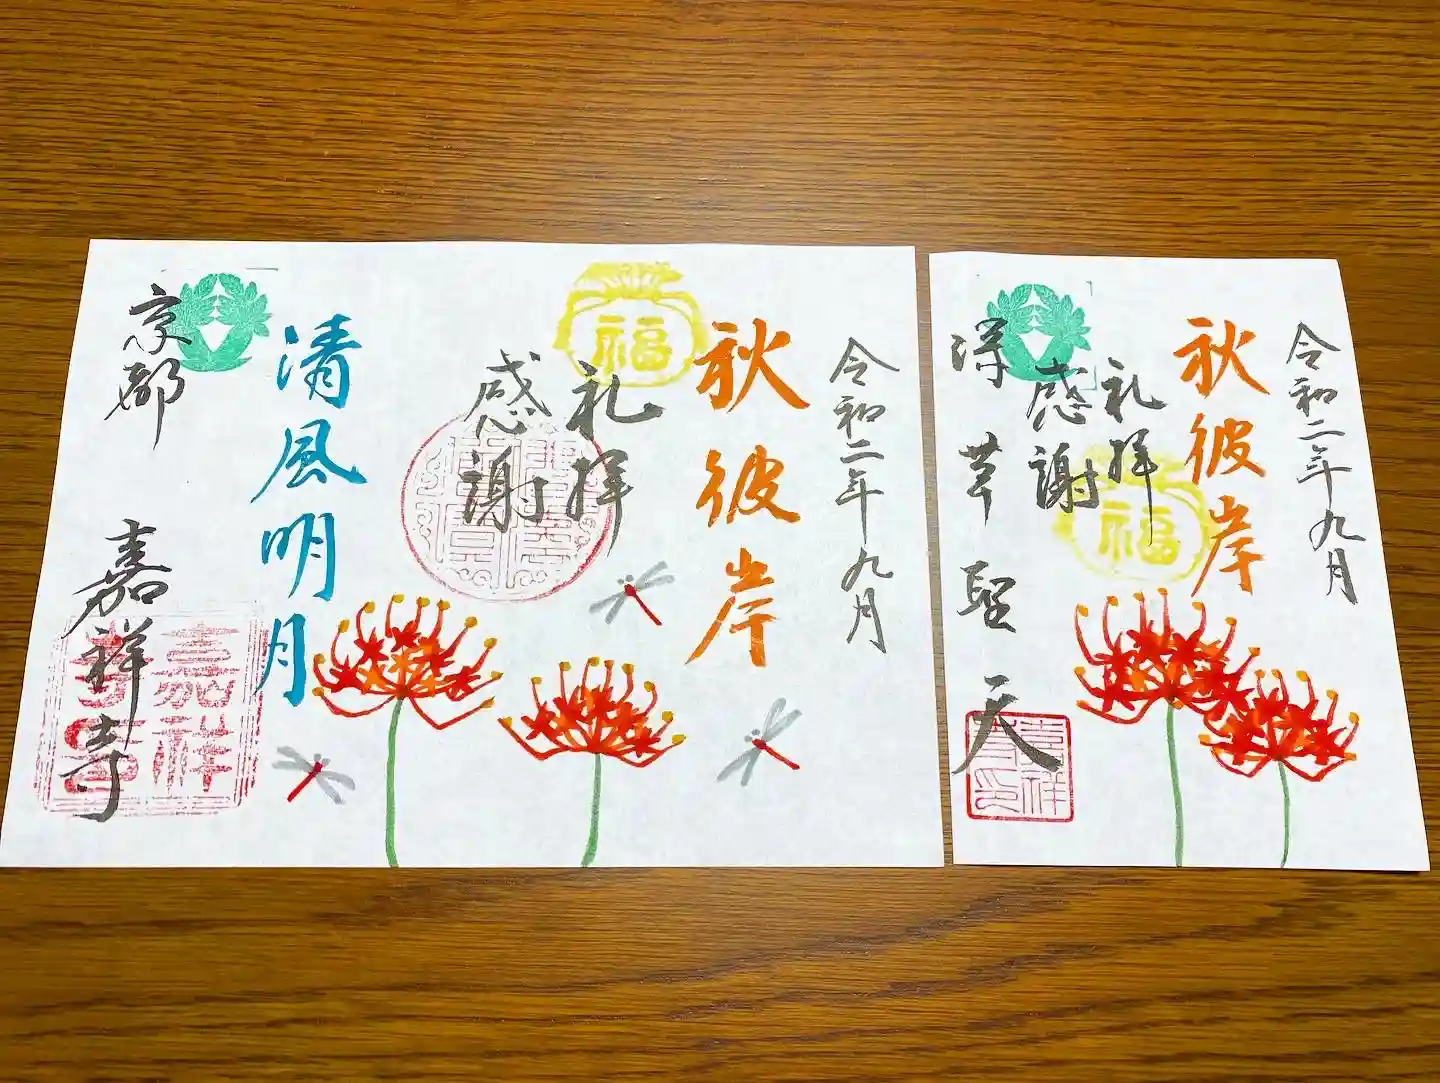 令和二年九月
秋彼岸
福
礼拝
感謝
清風明月
京都 嘉祥寺
嘉祥
令和二年九月
秋彼岸
礼拝
福
感謝
深草聖天